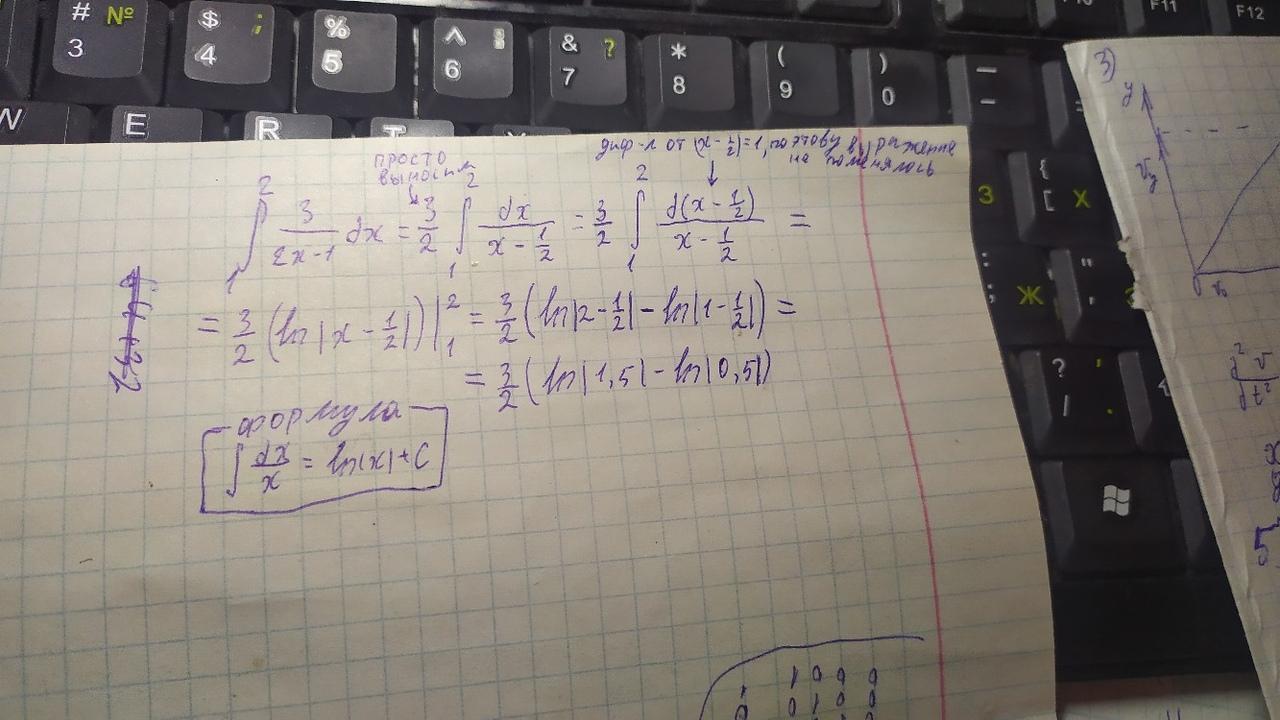 # № 3
$ ; 4
% 5
^ : 6
& ? 7
* 8
( 9
) 0
— -
F11
F12
W
E
R
T
просто
выносим
диф-л от (x - 1/2) = 1, поэтому выражение
не поменялось
∫₁² 3/(2x-1) dx = 3/2 ∫₁² dx/(x - 1/2) = 3/2 ∫₁² d(x - 1/2)/(x - 1/2) =
= 3/2 (ln|x - 1/2|)|₁² = 3/2 (ln|2 - 1/2| - ln|1 - 1/2|) =
= 3/2 (ln|1,5| - ln|0,5|)
формула
∫ dx/x = ln|x| + C
3)
y
{ [ Х
З
: ; Ж
"
? / , .
d²v
dt²
5
1 0 0 0
0 1 0 0